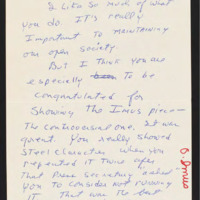 I like so much of what
you do. It's really
important to maintaining
our open society.
But I think you are
especially to be
congratulated for
showing the Imus piece—
the controversial one. It was
great. You really showed
steel clanking when you
repeated it twice after
that Press Secretary "asked"
you to consider not running
it. That was the best